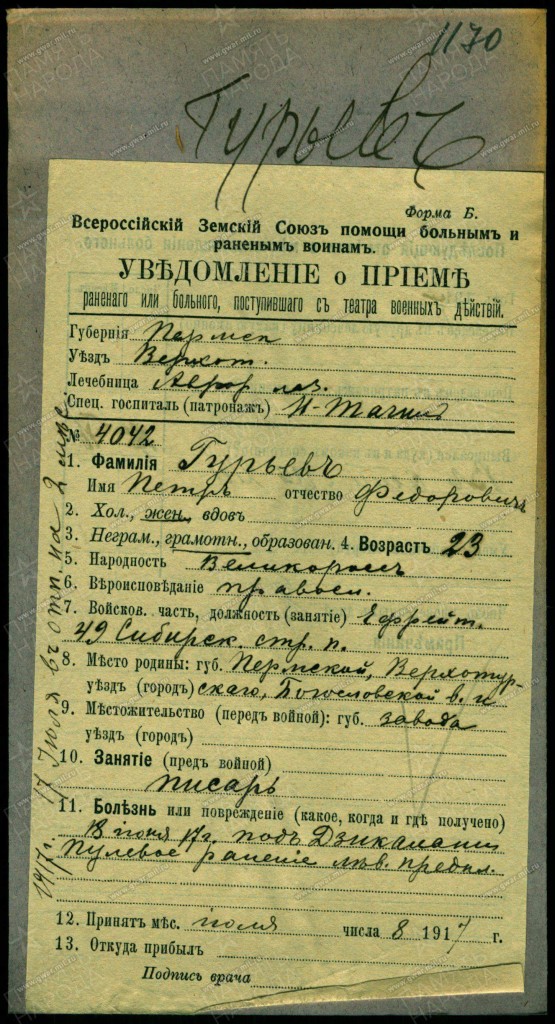 1170
Гурьевъ
Форма Б.
Всероссійскій Земскій Союзъ помощи больнымъ и
раненымъ воинамъ.
УВѢДОМЛЕНІЕ о ПРІЕМѢ
раненаго или больного, поступившаго съ театра военныхъ дѣйствій.
Губернія Пермск
Уѣздъ Верхот.
Лечебница леч.
Спец. госпиталь (патронажъ) Н-Тагилъ
№ 4042
1. Фамилія Гурьевъ
Имя Петръ отчество Федоровичъ
2. Хол., жен., вдовъ
3. Неграм., грамотн., образован. 4. Возрастъ 23
5. Народность Великороссъ
6. Вѣроисповѣданіе правосл.
7. Войсков. часть, должность (занятіе) Ефрейт.
49 Сибирск. стр. п.
8. Мѣсто родины: губ. Пермской, Верхотур-
уѣздъ (городъ) скаго, Богословской в. и
9. Мѣстожительство (передъ войной): губ. завода
уѣздъ (городъ)
10. Занятіе (предъ войной)
писарь
11. Болѣзнь или поврежденіе (какое, когда и гдѣ получено)
18 іюня 17г. подъ Дзикаланы
Пулевое раненіе лѣв. предпл.
12. Принятъ мѣс. іюля числа 8 1917 г.
13. Откуда прибылъ
Подпись врача
1917г. 17 Іюля въ отп. на 2 мѣс.